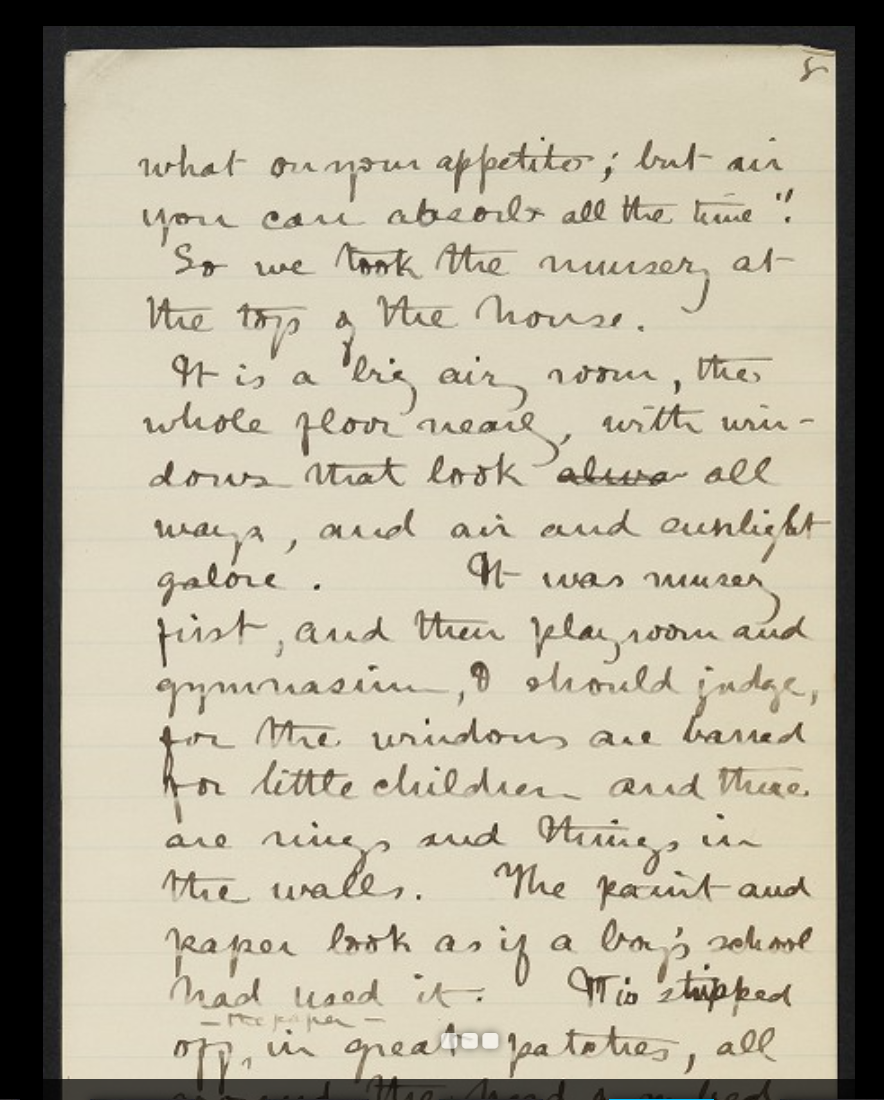 8
what on your appetite; but air
you can absorb all the time".
So we took the nursery at
the top of the house.
It is a big airy room, the
whole floor nearly, with win-
dows that look alwa all
ways, and air and sunlight
galore. It was nursery
first, and then playroom and
gymnasium, I should judge,
for the windows are barred
for little children and there
are rings and things in
the walls. The paint and
paper look as if a boy's school
had used it. It is stripped
- the paper -
off, in great patches, all
around the head of my bed